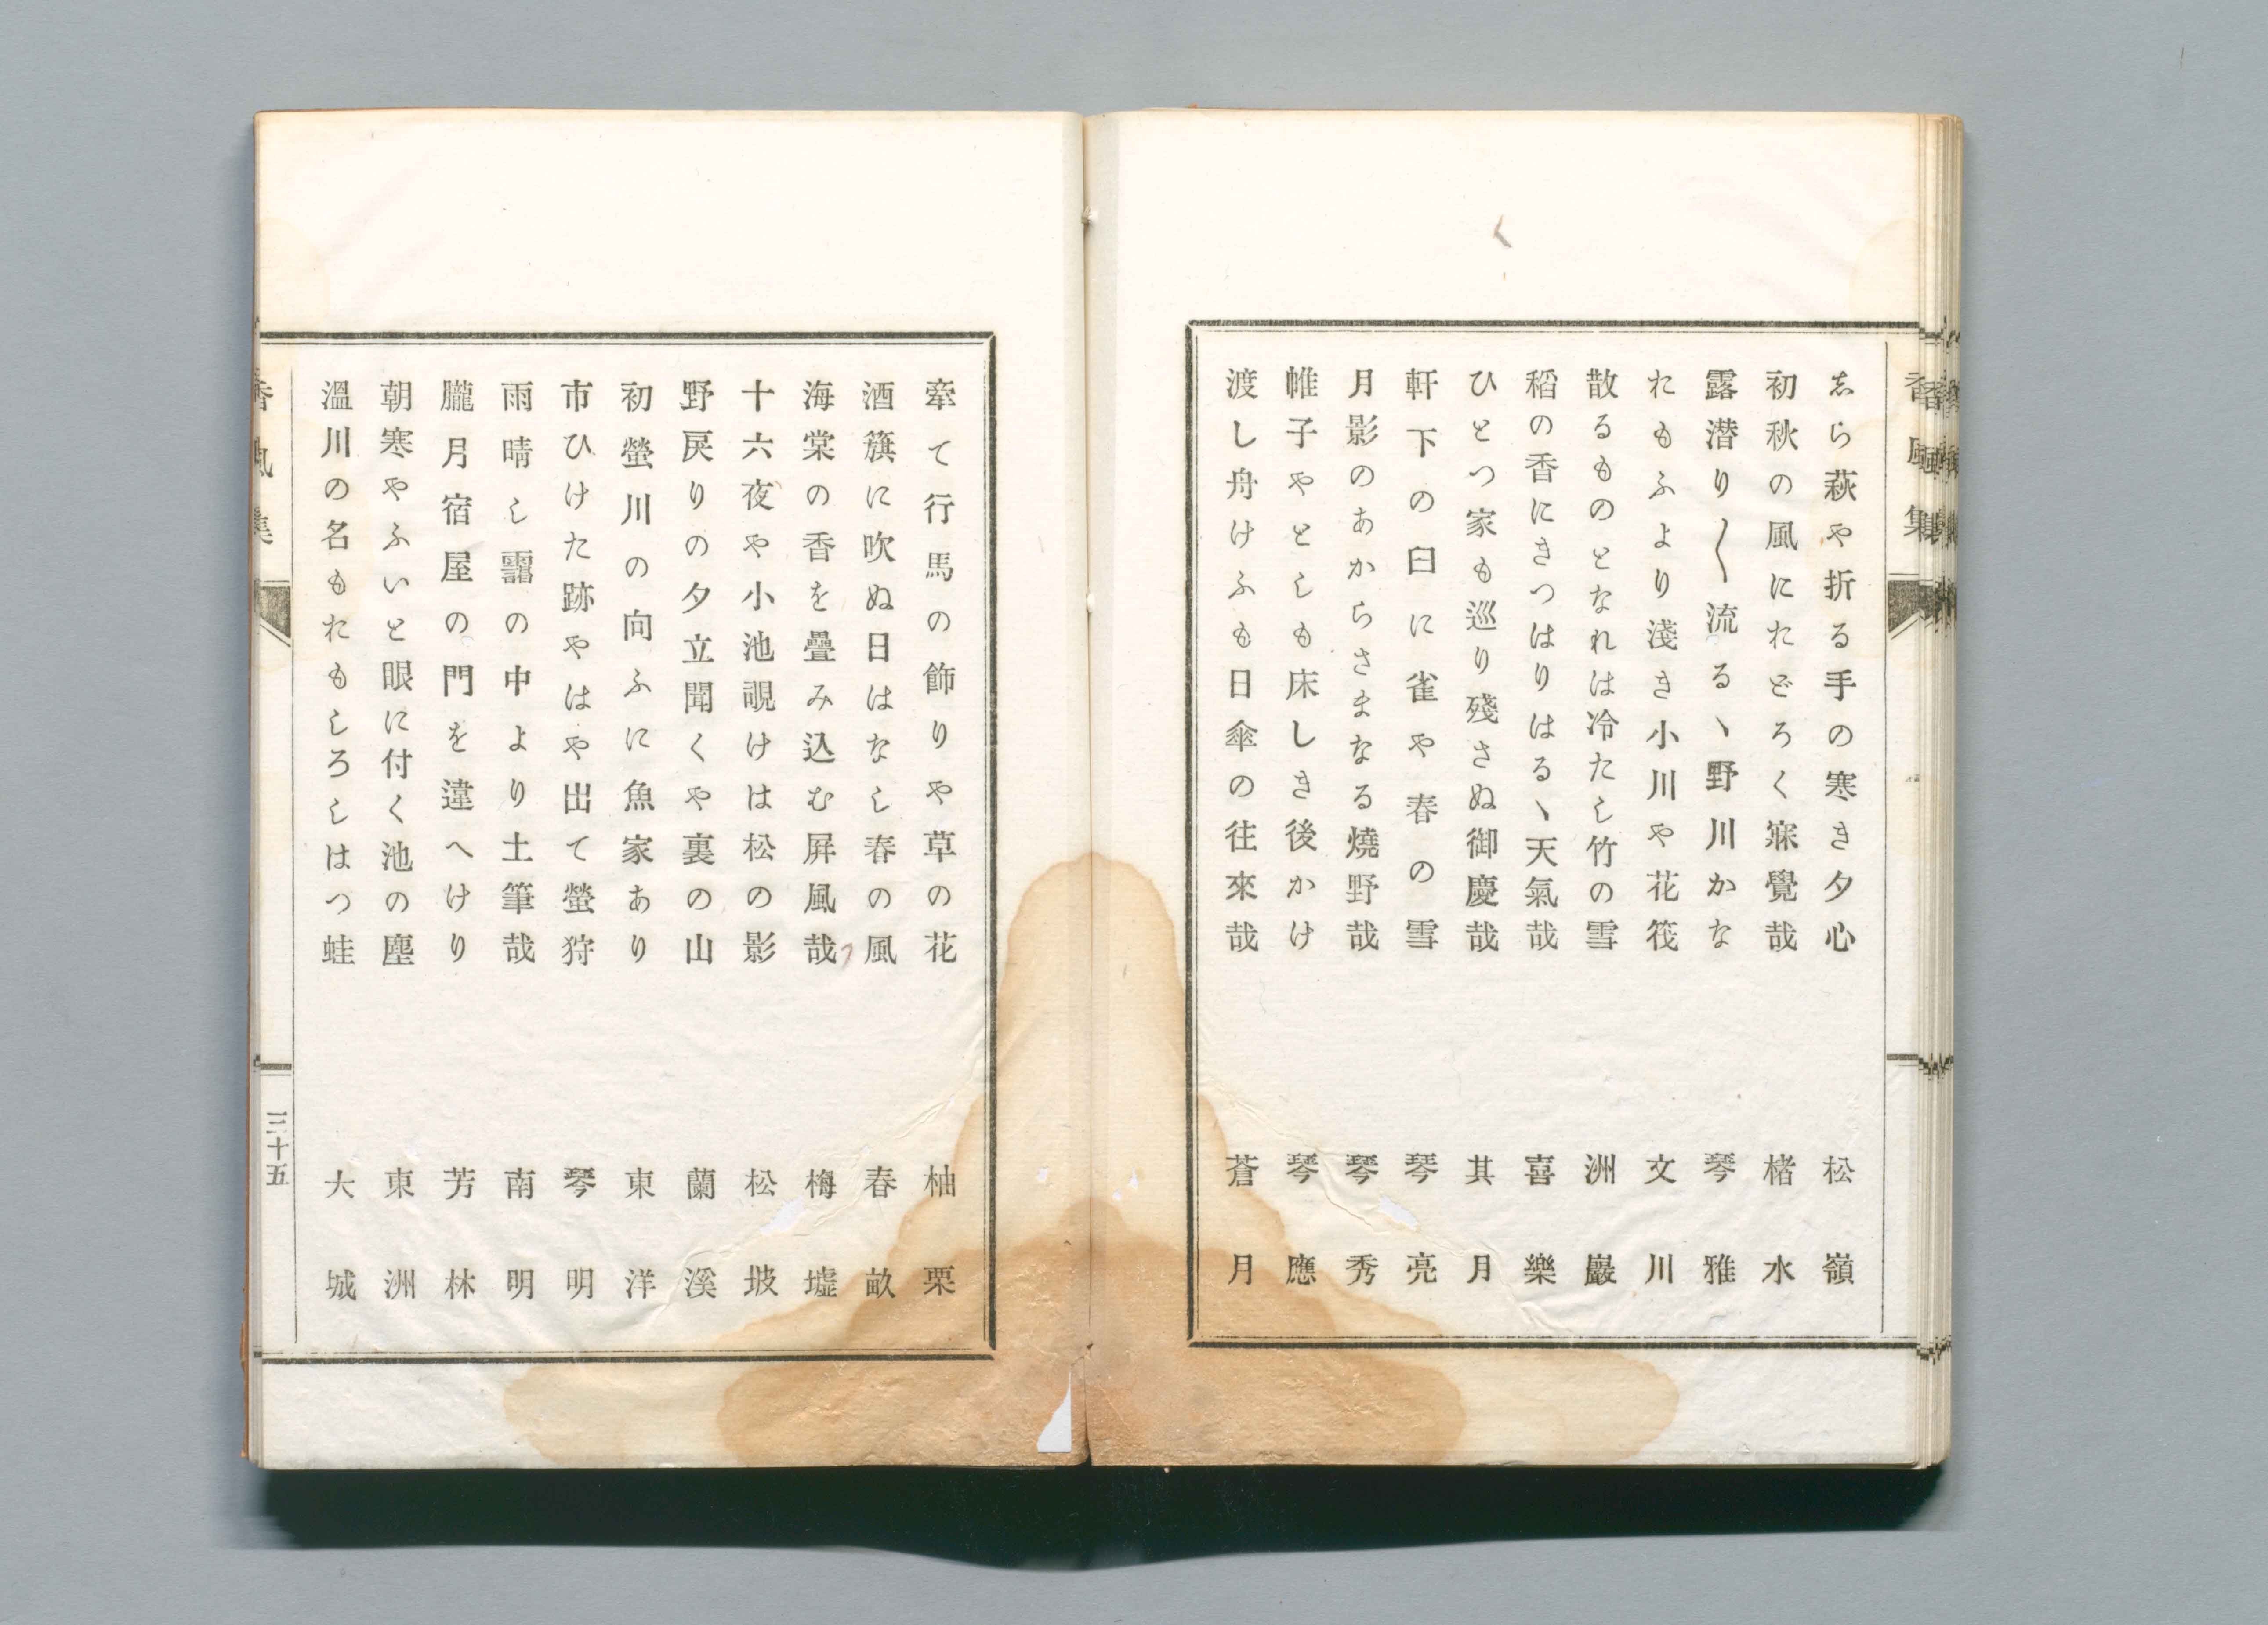 香風集
志ら萩や折る手の寒き夕心　松嶺
初秋の風にれどろく寐覺哉　楮水
露潜り〳〵流るヽ野川かな　琴雅
れもふより淺き小川や花筏　文川
散るものとなれは冷たし竹の雪　洲巖
稻の香にきつはりはるヽ天氣哉　喜樂
ひとつ家も巡り殘さぬ御慶哉　其月
軒下の臼に雀や春の雪　琴亮
月影のあからさまなる燒野哉　琴秀
帷子やとしも床しき後かけ　琴應
渡し舟けふも日傘の往來哉　蒼月
牽て行馬の飾りや草の花　柚栗
酒旗に吹ぬ日はなし春の風　春畝
海棠の香を疊み込む屏風哉　梅墟
十六夜や小池覗けは松の影　松坡
野戻りの夕立聞くや裏の山　蘭溪
初螢川の向ふに魚家あり　東洋
市ひけた跡やはや出て螢狩　琴明
雨晴し靄の中より土筆哉　南明
朧月宿屋の門を違へけり　芳林
朝寒やふいと眼に付く池の塵　東洲
溫川の名もれもしろしはつ蛙　大城
香風集
三十五